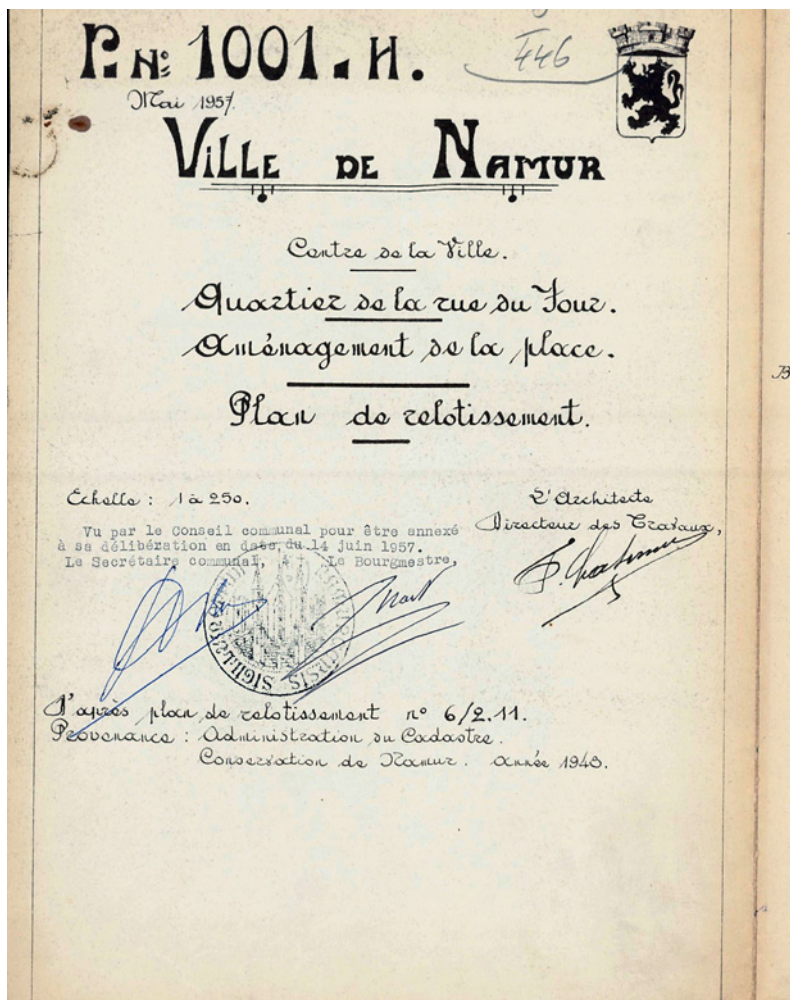 P. Nº 1001. H.
446
Mai 1957.
VILLE DE NAMUR
Centre de la Ville.
Quartier de la rue du Four.
Aménagement de la place.
Plan de relotissement.
Echelle : 1 à 250.
L'Architecte
Directeur des Travaux,
Vu par le Conseil communal pour être annexé
à sa délibération en date du 14 juin 1957.
Le Secrétaire communal, Le Bourgmestre,
D'après plan de relotissement nº 6/2.11.
Provenance : Administration du Cadastre.
Conservation de Namur. Année 1948.